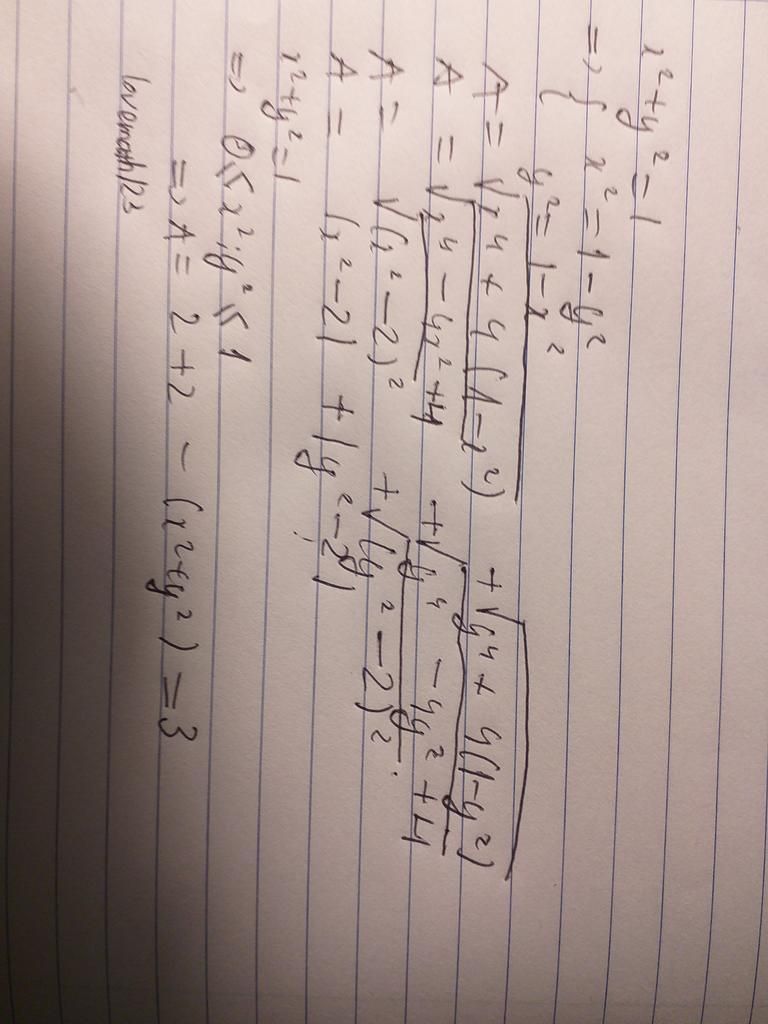 x²+y²=1
=> { x² = 1 - y²
y² = 1 - x²
A = √x⁴ + 4(1-x²) + √y⁴ + 4(1-y²)
A = √x⁴ - 4x² + 4 + √y⁴ - 4y² + 4
A = √(x² - 2)² + √(y² - 2)²
A = |x² - 2| + |y² - 2|
x²+y²=1
=> 0 ≤ x²; y² ≤ 1
=> A = 2 + 2 - (x²+y²) = 3
lovemath123